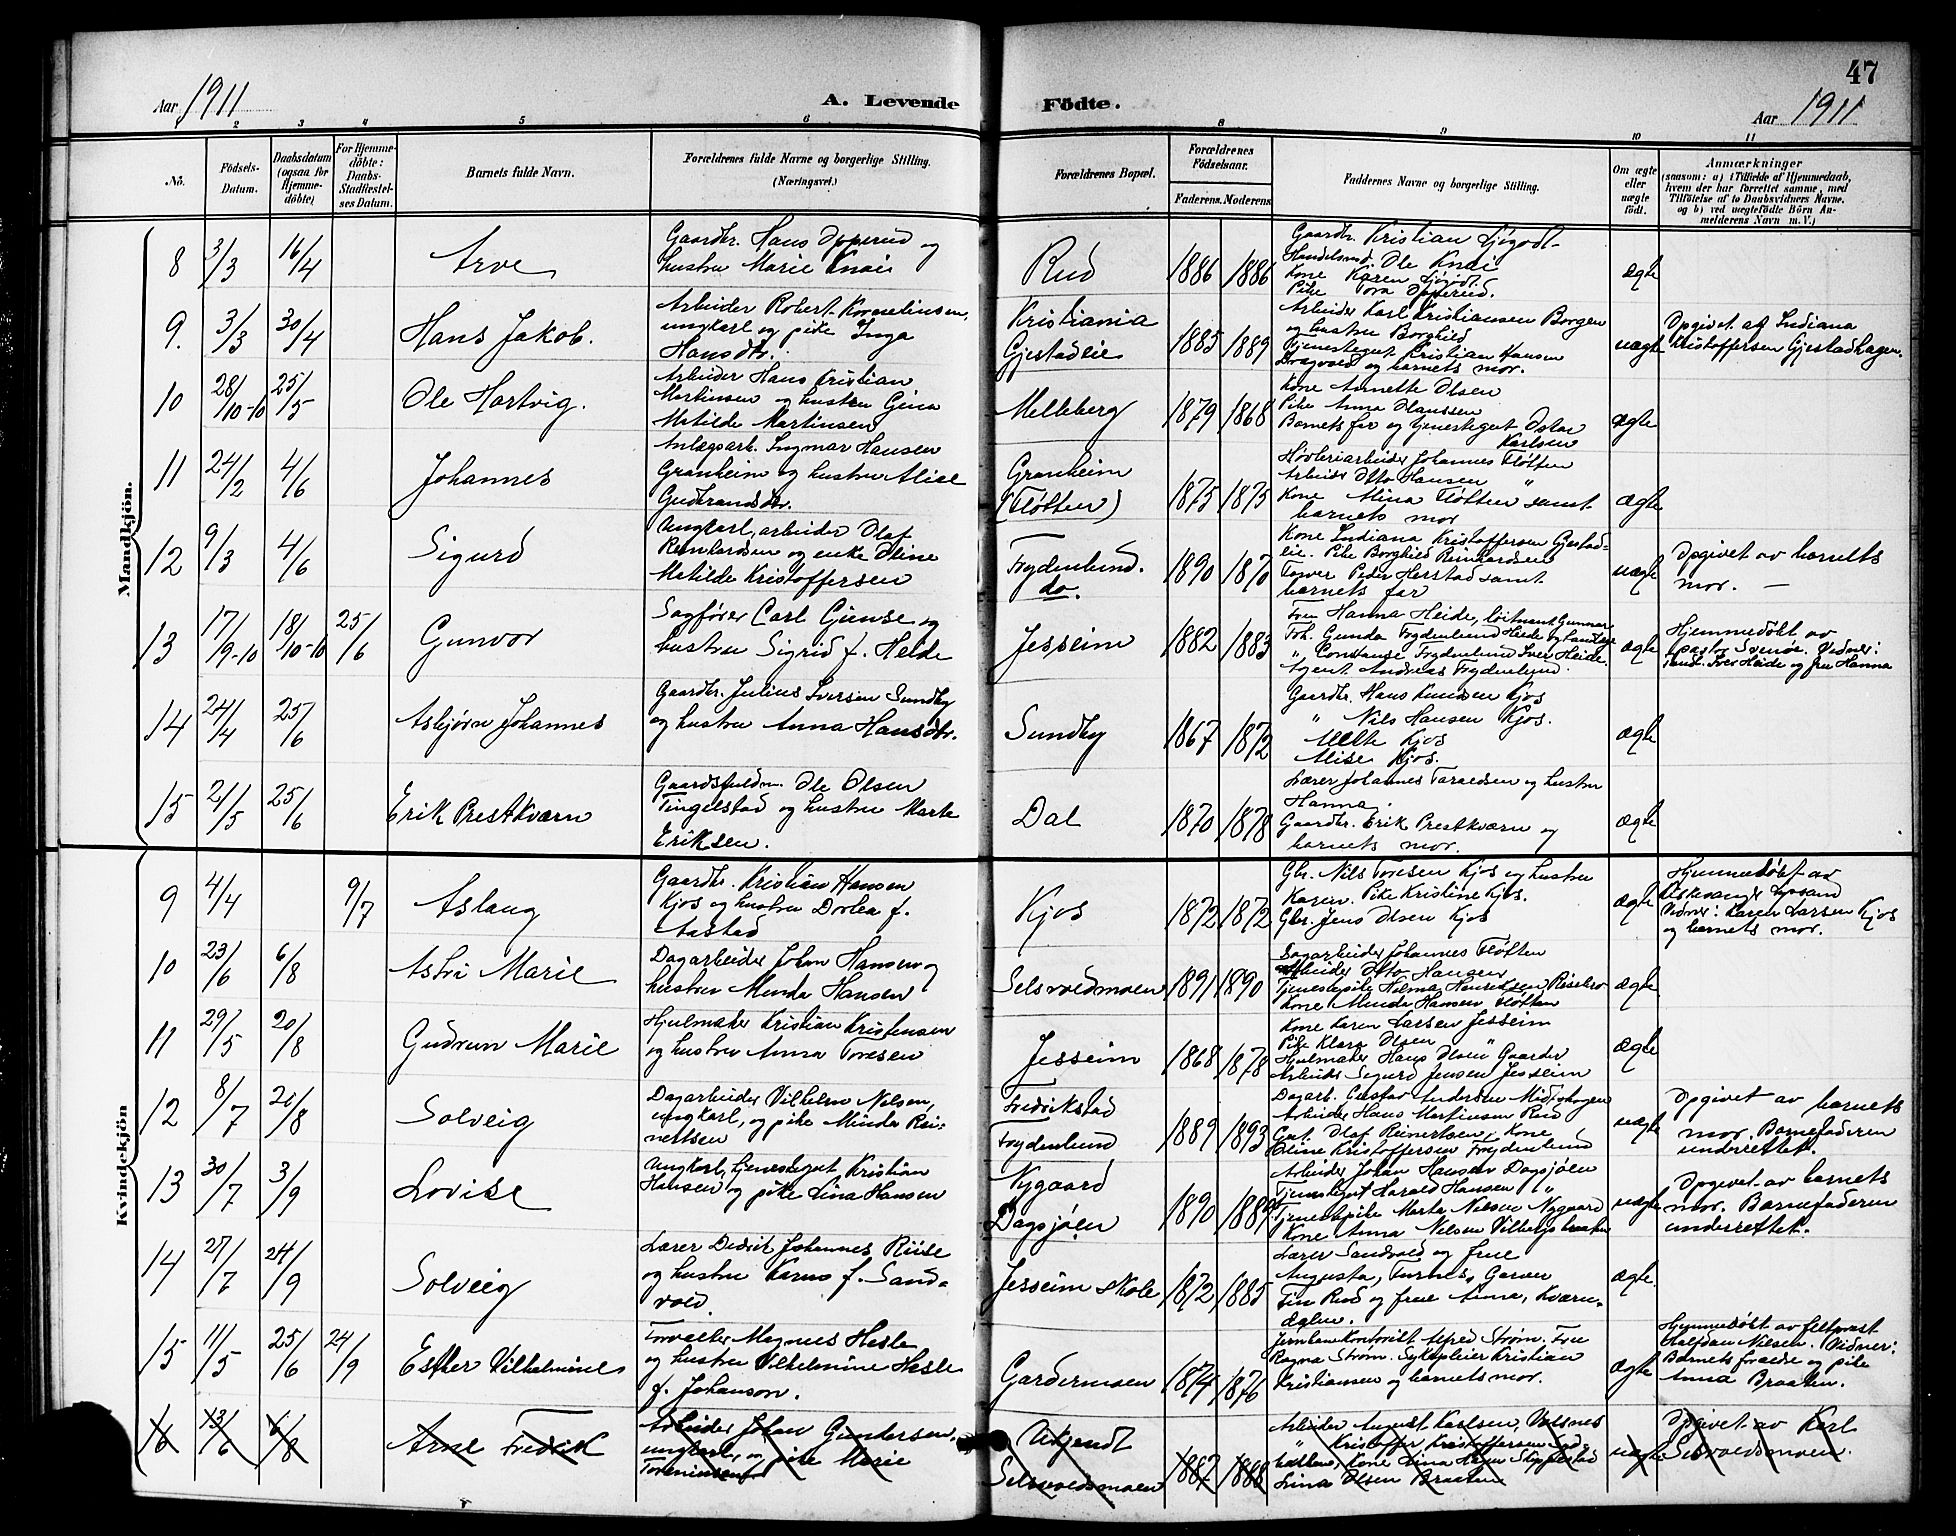 47
Aar 1911
A. Levende
Födte.
Aar 1911
2 3 4 5 6 8 9 10 11
No.
Födsels-Datum.
Daabsdatum (ogsaa for Hjemmedöbte)
For Hjemmedöbte: Daabs-Stadfæstelses Datum.
Barnets fulde Navn.
Forældrenes fulde Navne og borgerlige Stilling.
(Næringsvei.)
Forældrenes Bopæl.
Forældrenes Födselsaar.
Faderens. Moderens
Faddernes Navne og borgerlige Stilling.
Om ægte eller uægte födt.
Anmærkninger
(saasom: a) i Tilfælde af Hjemmedaab,
hvem der har forrettet samme, med
Tilföielse af to Daabsvidners Navne.
og b) ved uægtefödte Börn An-
melderens Navn m. V.)
Mandkjön.
8 3/3 16/4 Arve
Gaardbr. Hans Opperud og
hustru Marie Knai
Rud 1886 1886
Gaardbr. Kristian Sjøgodt
Handelsmd. Ole Knai
Kone Karen Sjøgodt.
Pike Tora Opperud.
ægte
9. 3/3 30/4 Hans Jakob.
Arbeider Robert Kornelinsen,
ungkarl og pike Inga
Hansdtr.
Kristiania
Gjestadlie
1885 1889
Arbeider Karl Kristiansen Borgen
og hustru Borghild
Tjenestegut Kristian Hansen
Dragvold og barnets mor.
uægte
Opgivet af Indiana
Kristoffersen Gjestadhagen.
10 28/10-10 25/5 Ole Hartvig.
Arbeider Hans Kristian
Martinsen og hustru Gina
Matilde Martinsen
Melleberg 1879 1868
Kone Annette Olsen
Pike Anna Hanssen
Barnets far og tjenestegut Oskar
Karlsen
ægte
11 24/2 4/6 Johannes
Anlægsarb. Ingmar Hansen
Granheim og hustru Alise
Gudbrandsdtr.
Granheim
(Fløtten)
1875 1875
Høvleriarbeider Johannes Fløtten
Arbeider Otto Hansen "
Kone Mina Fløtten samt
barnets mor
ægte
12 9/3 4/6 Sigurd
Ungkarl, arbeider Olaf
Reinhardsen og enke Oline
Matilde Kristoffersen
Frydenlund.
do.
1890 1870
Kone Indiana Kristoffersen Gjestad-
lie. Pike Borghild Reinhardsen
Farver Peder Herstad samt
barnets far
uægte
Opgivet av barnets
mor. —
13 17/9-10 18/10-10 25/6 Gunvor
Sagfører Carl Gjems og
hustru Sigrid f. Heide
Jesseim 1882 1883
Fru Hanna Heide, løitnant Gunnar
Frk. Gunda Frydenlund Heide og landbr.
" Constanse Frydenlund Iver Heide
Agent Andreas Frydenlund.
ægte
Hjemmedøbt av
pastor Svenøe. Vidner:
landbr. Iver Heide og fru Hanna
14 24/4 25/6 Asbjørn Johannes
Gaardbr. Julius Iversen Sundby
og hustru Anna Hansdtr.
Sundby 1867 1872
Gaardbr. Hans Knudsen Kjos
" Nils Hansen Kjos.
Mette Kjos
Alise Kjos.
ægte
15 21/5 25/6 Erik Prestkværn
Gaardsfuldm. Ole Olsen
Tingelstad og hustru Marte
Eriksen.
Dal 1870 1878
Lærer Johannes Taraldsen og hustru
Hanna.
Gaardbr. Erik Prestkværn og
barnets mor.
ægte
Kvindekjön
9 4/4 9/7 Aslaug
Gaardbr. Kristian Hansen
Kjos og hustru Dorthea f.
Aastad
Kjos 1872 1872
Gbr. Nils Toresen Kjos og hustru
Karen. Pike Kristine Kjos.
Gbr. Jens Olsen Kjos
ægte
Hjemmedøbt av
Vidner: Karen Larsen Kjos
og barnets mor.
10 23/6 6/8 Astri Marie
Dagarbeider Johan Hansen og
hustru Minda Hansen
Selsvoldmoen 1891 1890
Dagarbeider Johannes Fløtten
Arbeider Otto Hansen
Tjenestepike Helma Henriksen Risebro
Kone Minda Hansen Fløtten
ægte
11 29/5 20/8 Gudrun Marie
Hjulmaker Kristian Kristensen
og hustru Anna Toresen
Jesseim 1868 1878
Kone Karen Larsen Jesseim
Pike Klara Olsen "
Hjulmaker Hans Olsen Gaarder
Arbeider Sigurd Jensen Jesseim
ægte
12 8/7 20/8 Solveig
Dagarbeider Vilhelm Nilsen,
ungkarl, og pike Minda Rei-
nertsen
Fredrikstad
Frydenlund
1889 1893
Dagarb. Gustav Anderson Midtskogen
Arbeider Hans Martinsen Rud
Gut. Olaf Reinertsen, Kone
Oline Kristoffersen Frydenlund
uægte
Opgivet av barnets
mor. Barnefaderen
underrettet.
13 30/7 3/9 Lovise
Ungkarl, tjenestegut Kristian
Hansen og pike Lina Hansen
Nygaard
Dagsjøen
1890 1889
Arbeider Johan Hansen Dagsjøen
Tjenestegut Harald Hansen "
Tjenestepike Marta Nilsen Nygaard
Kone Anna Nilsen Vilbergsbraaten
uægte
Opgivet av barnets
mor. Barnefaderen
underrettet.
14 27/7 24/9 Solveig
Lærer Didrik Johannes Riise
og hustru Karen f. Sand-
vold.
Jesseim skole 1872 1885
Lærer Sandvold og frue
Augusta, Furnes, Garver
Finn Rud og frue Anna, Kværn-
dalen.
ægte.
15 11/5 25/6 24/9 Esther Vilhelmine
Forvalter Magnus Hesle
og hustru Vilhelmine Hesle
f. Johanson.
Gardermoen 1874 1876
Jernbanekontorist Alfred Strøm. Fru
Ragna Strøm. Sykepleier Kristian
Kristiansen og barnets mor.
ægte
Hjemmedøbt av feltprest
Halfdan Nielsen. Vidner:
Barnets forældre og pike
Anna Braaten.
16 13/6 6/8 Arne Fredrik
Arbeider Johan Gundersen,
ungkarl, og pike Marie
Toreniussen
Ukjendt
Selsvoldsmoen
1887 1888
Arbeider August Karlsen,
" Kristoffer Kristoffersen
Kone Lina
Lina Olsen Braaten
uægte
Opgivet av Karl
Selsvoldsmoen.